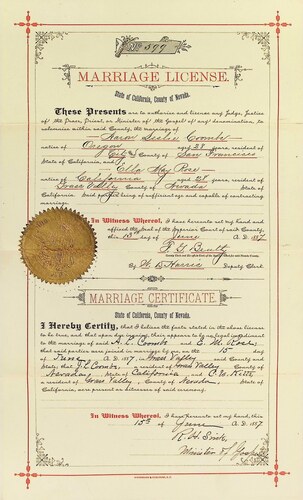 No 577
MARRIAGE LICENSE.
State of California, County of Nevada.
These Presents are to authorize and license any Judge, Justice
of the Peace, Priest, or Minister of the Gospel of any denomination, to
solemnize within said County, the marriage of
Aaron Leslie Coombs native
of Oregon aged 38, resident of
City & County of San Francisco
State of California, and
Ella May Rose native
of California aged 28, resident of
Grass Valley, County of Nevada State of
California. Said parties being of sufficient age and capable of contracting
marriage.
In Witness Whereof, I have hereunto set my hand and
affixed the Seal of the Superior Court of said County,
this day of June A. D. 1897
F. G. Beatty
By W. D. Harris Deputy Clerk.
MARRIAGE CERTIFICATE.
State of California, County of Nevada.
I Hereby Certify, that I believe the facts stated in the above license
to be true, and that upon due inquiry there appears to be no legal impediment
to the marriage of said A. L. Coombs and E. M. Rose
that said parties were joined in marriage by me, on the 15 day
of June A. D. 1897, in Grass Valley County and
State; that Coombs, a resident of Grass Valley County of
Nevada, State of California and
a resident of Grass Valley, County of Nevada, State of
California, were present as witnesses of said ceremony.
In Witness Whereof, I have hereunto set my hand, this
15th of June A. D. 1897
Minister of Gospel